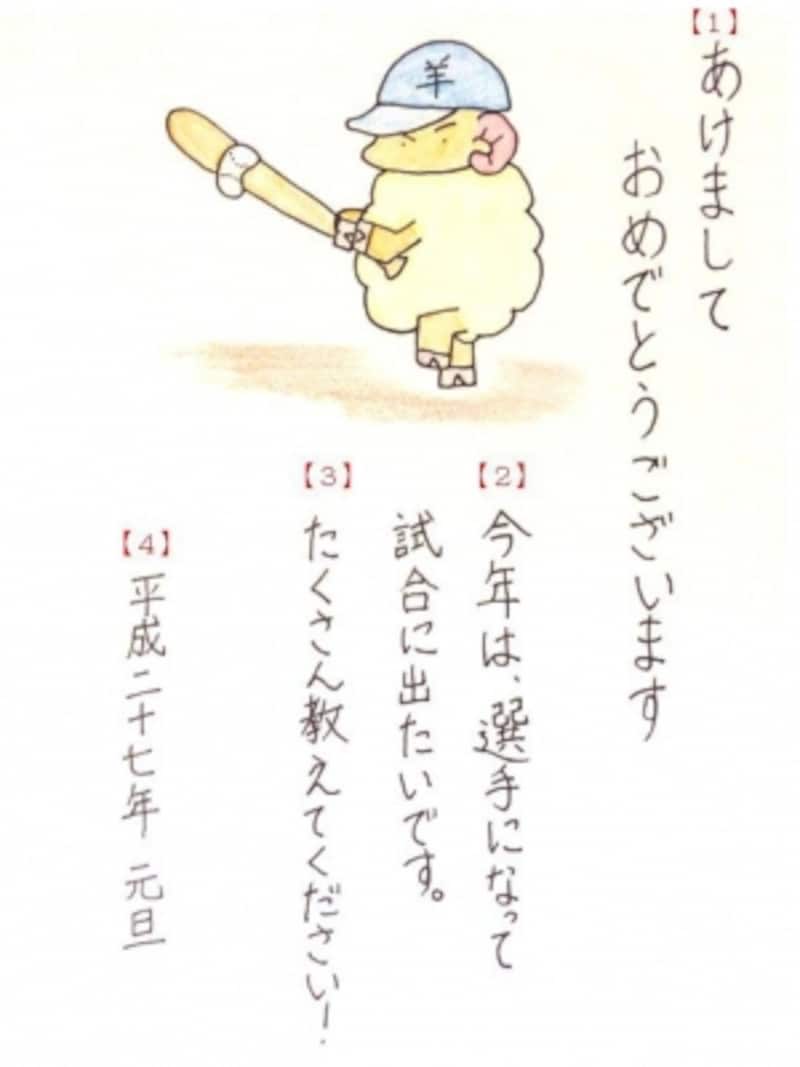 【1】
あけまして
おめでとうございます
羊
【2】
今年は、選手になって
試合に出たいです。
【3】
たくさん教えてください！
【4】
平成二十七年 元旦